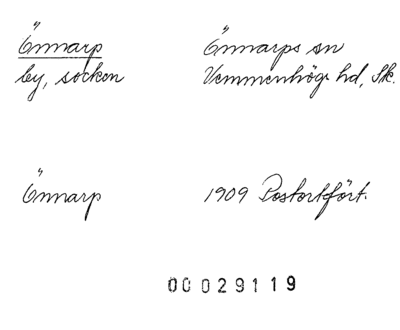 Önnarp Önnarps sn
by, socken Vemmenhögs hd, Sk.
Önnarp 1909 Postortfört.
00029119